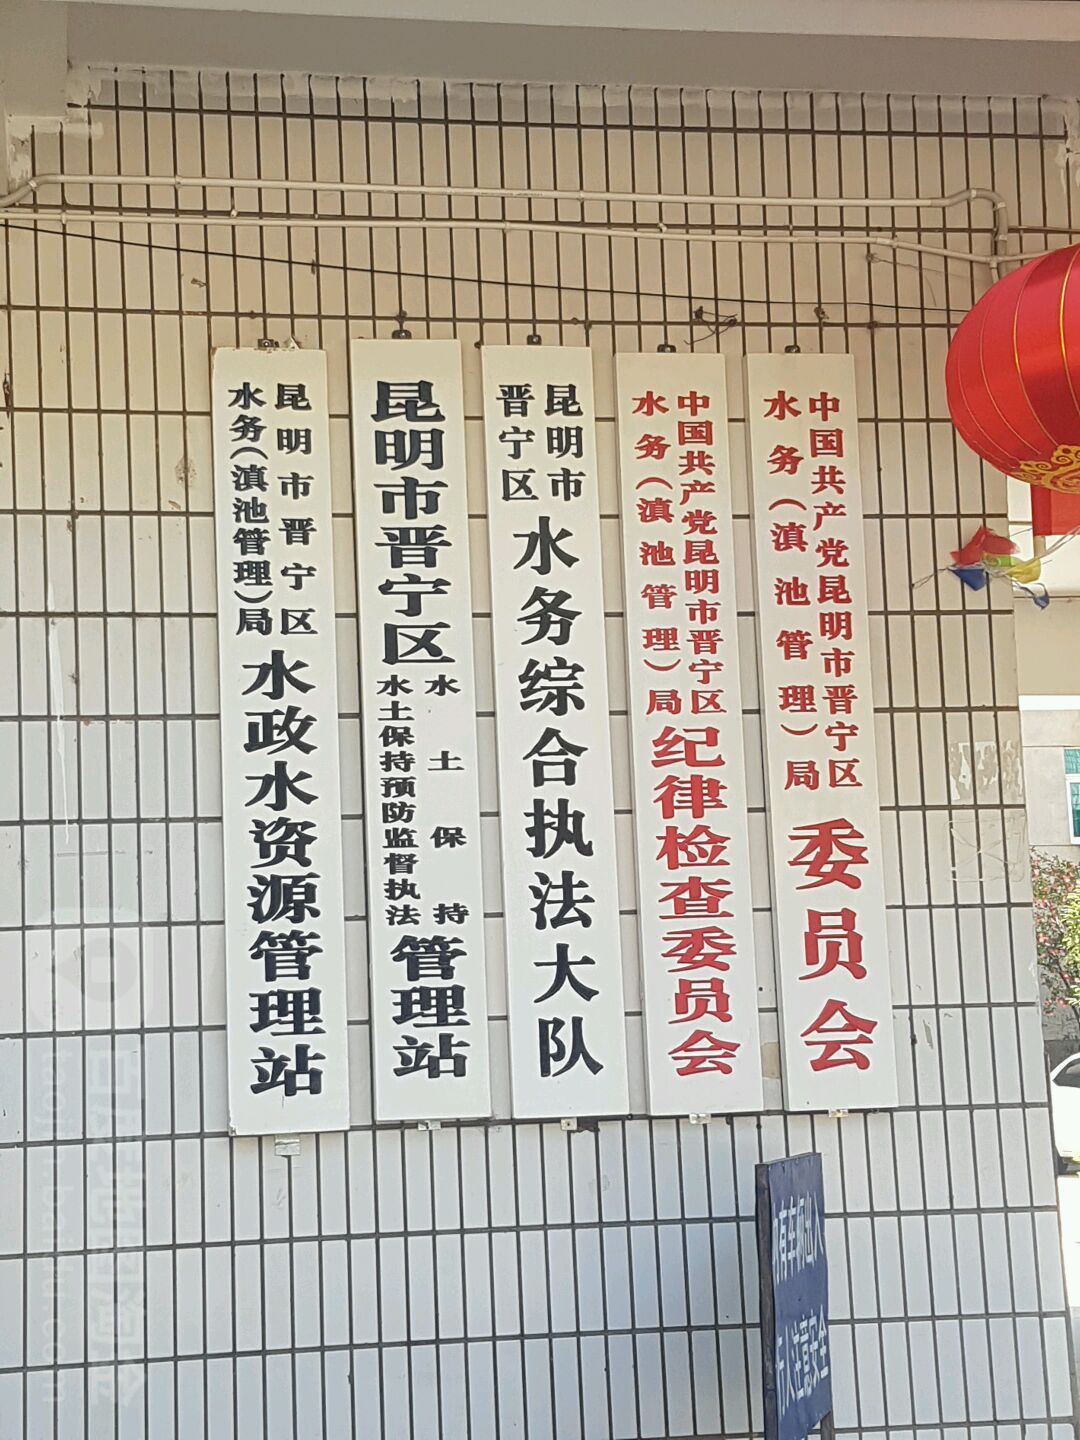 昆明市晋宁区
水务(滇池管理)局
水政水资源管理站
昆明市晋宁区
水土保持
水土保持预防监督执法
管理站
昆明市
晋宁区
水务综合执法大队
中国共产党昆明市晋宁区
水务(滇池管理)局
纪律检查委员会
中国共产党昆明市晋宁区
水务(滇池管理)局
委员会
有车辆出入
行人注意安全